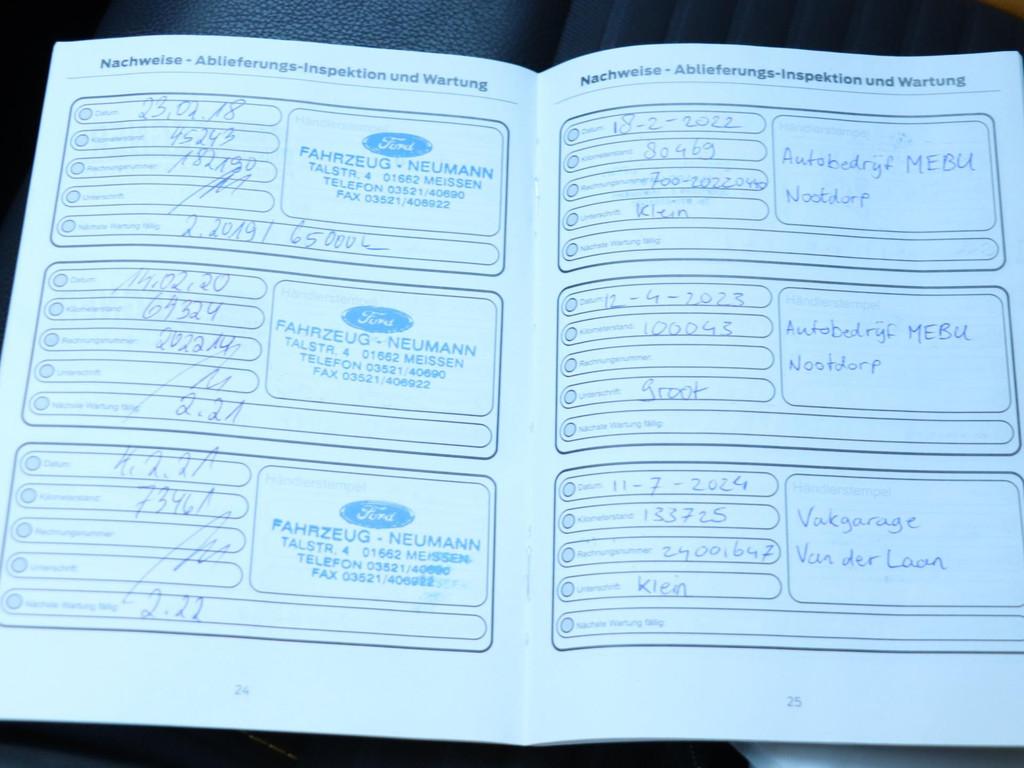 Nachweise - Ablieferungs-Inspektion und Wartung
Datum: 23.02.18
Kilometerstand: 45243
Rechnungsnummer: 182190
Unterschrift:
Nächste Wartung fällig: 2.2019 / 65000
Händlerstempel
Ford
FAHRZEUG - NEUMANN
TALSTR. 4 01662 MEISSEN
TELEFON 03521/40690
FAX 03521/406922
Datum: 14.02.20
Kilometerstand: 64324
Rechnungsnummer:
Unterschrift:
Nächste Wartung fällig: 2.21
Händlerstempel
Ford
FAHRZEUG - NEUMANN
TALSTR. 4 01662 MEISSEN
TELEFON 03521/40690
FAX 03521/406922
Datum: 4.2.21
Kilometerstand: 73461
Rechnungsnummer:
Unterschrift:
Nächste Wartung fällig: 2.22
Händlerstempel
Ford
FAHRZEUG - NEUMANN
TALSTR. 4 01662 MEISSEN
TELEFON 03521/40690
FAX 03521/406922
24
Nachweise - Ablieferungs-Inspektion und Wartung
Datum: 18-2-2022
Kilometerstand: 80469
Rechnungsnummer:
Unterschrift: Klein
Nächste Wartung fällig:
Händlerstempel
Autobedrijf MEBU
Nootdorp
Datum: 12-4-2023
Kilometerstand: 100043
Rechnungsnummer:
Unterschrift: Groot
Nächste Wartung fällig:
Händlerstempel
Autobedrijf MEBU
Nootdorp
Datum: 11-7-2024
Kilometerstand: 133725
Rechnungsnummer: 24001647
Unterschrift: Klein
Nächste Wartung fällig:
Händlerstempel
Vakgarage
Van der Laan
25